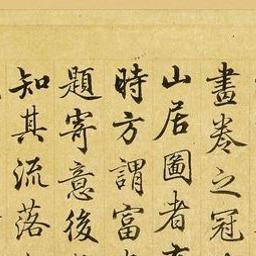 畫卷之冠
山居圖者
時方謂富
題寄意後
知其流落